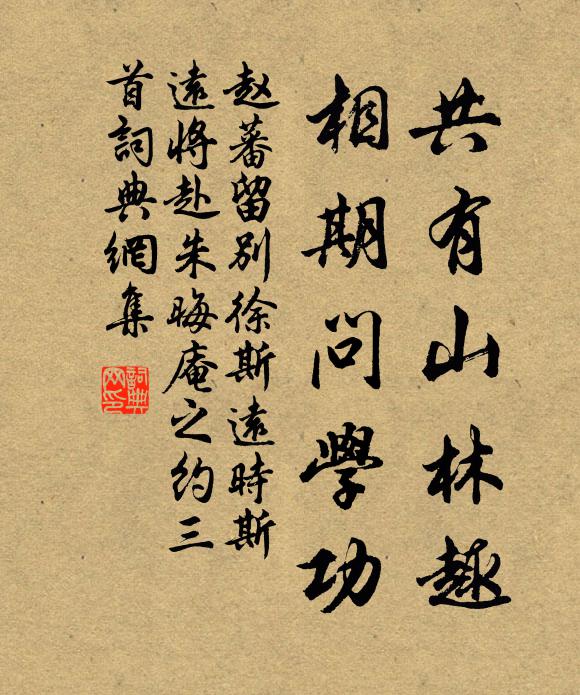 共有山林趣
相期問學功
赵蕃留別徐斯遠時斯
遠將赴朱晦庵之約三
首詞典網集
詞典
网印